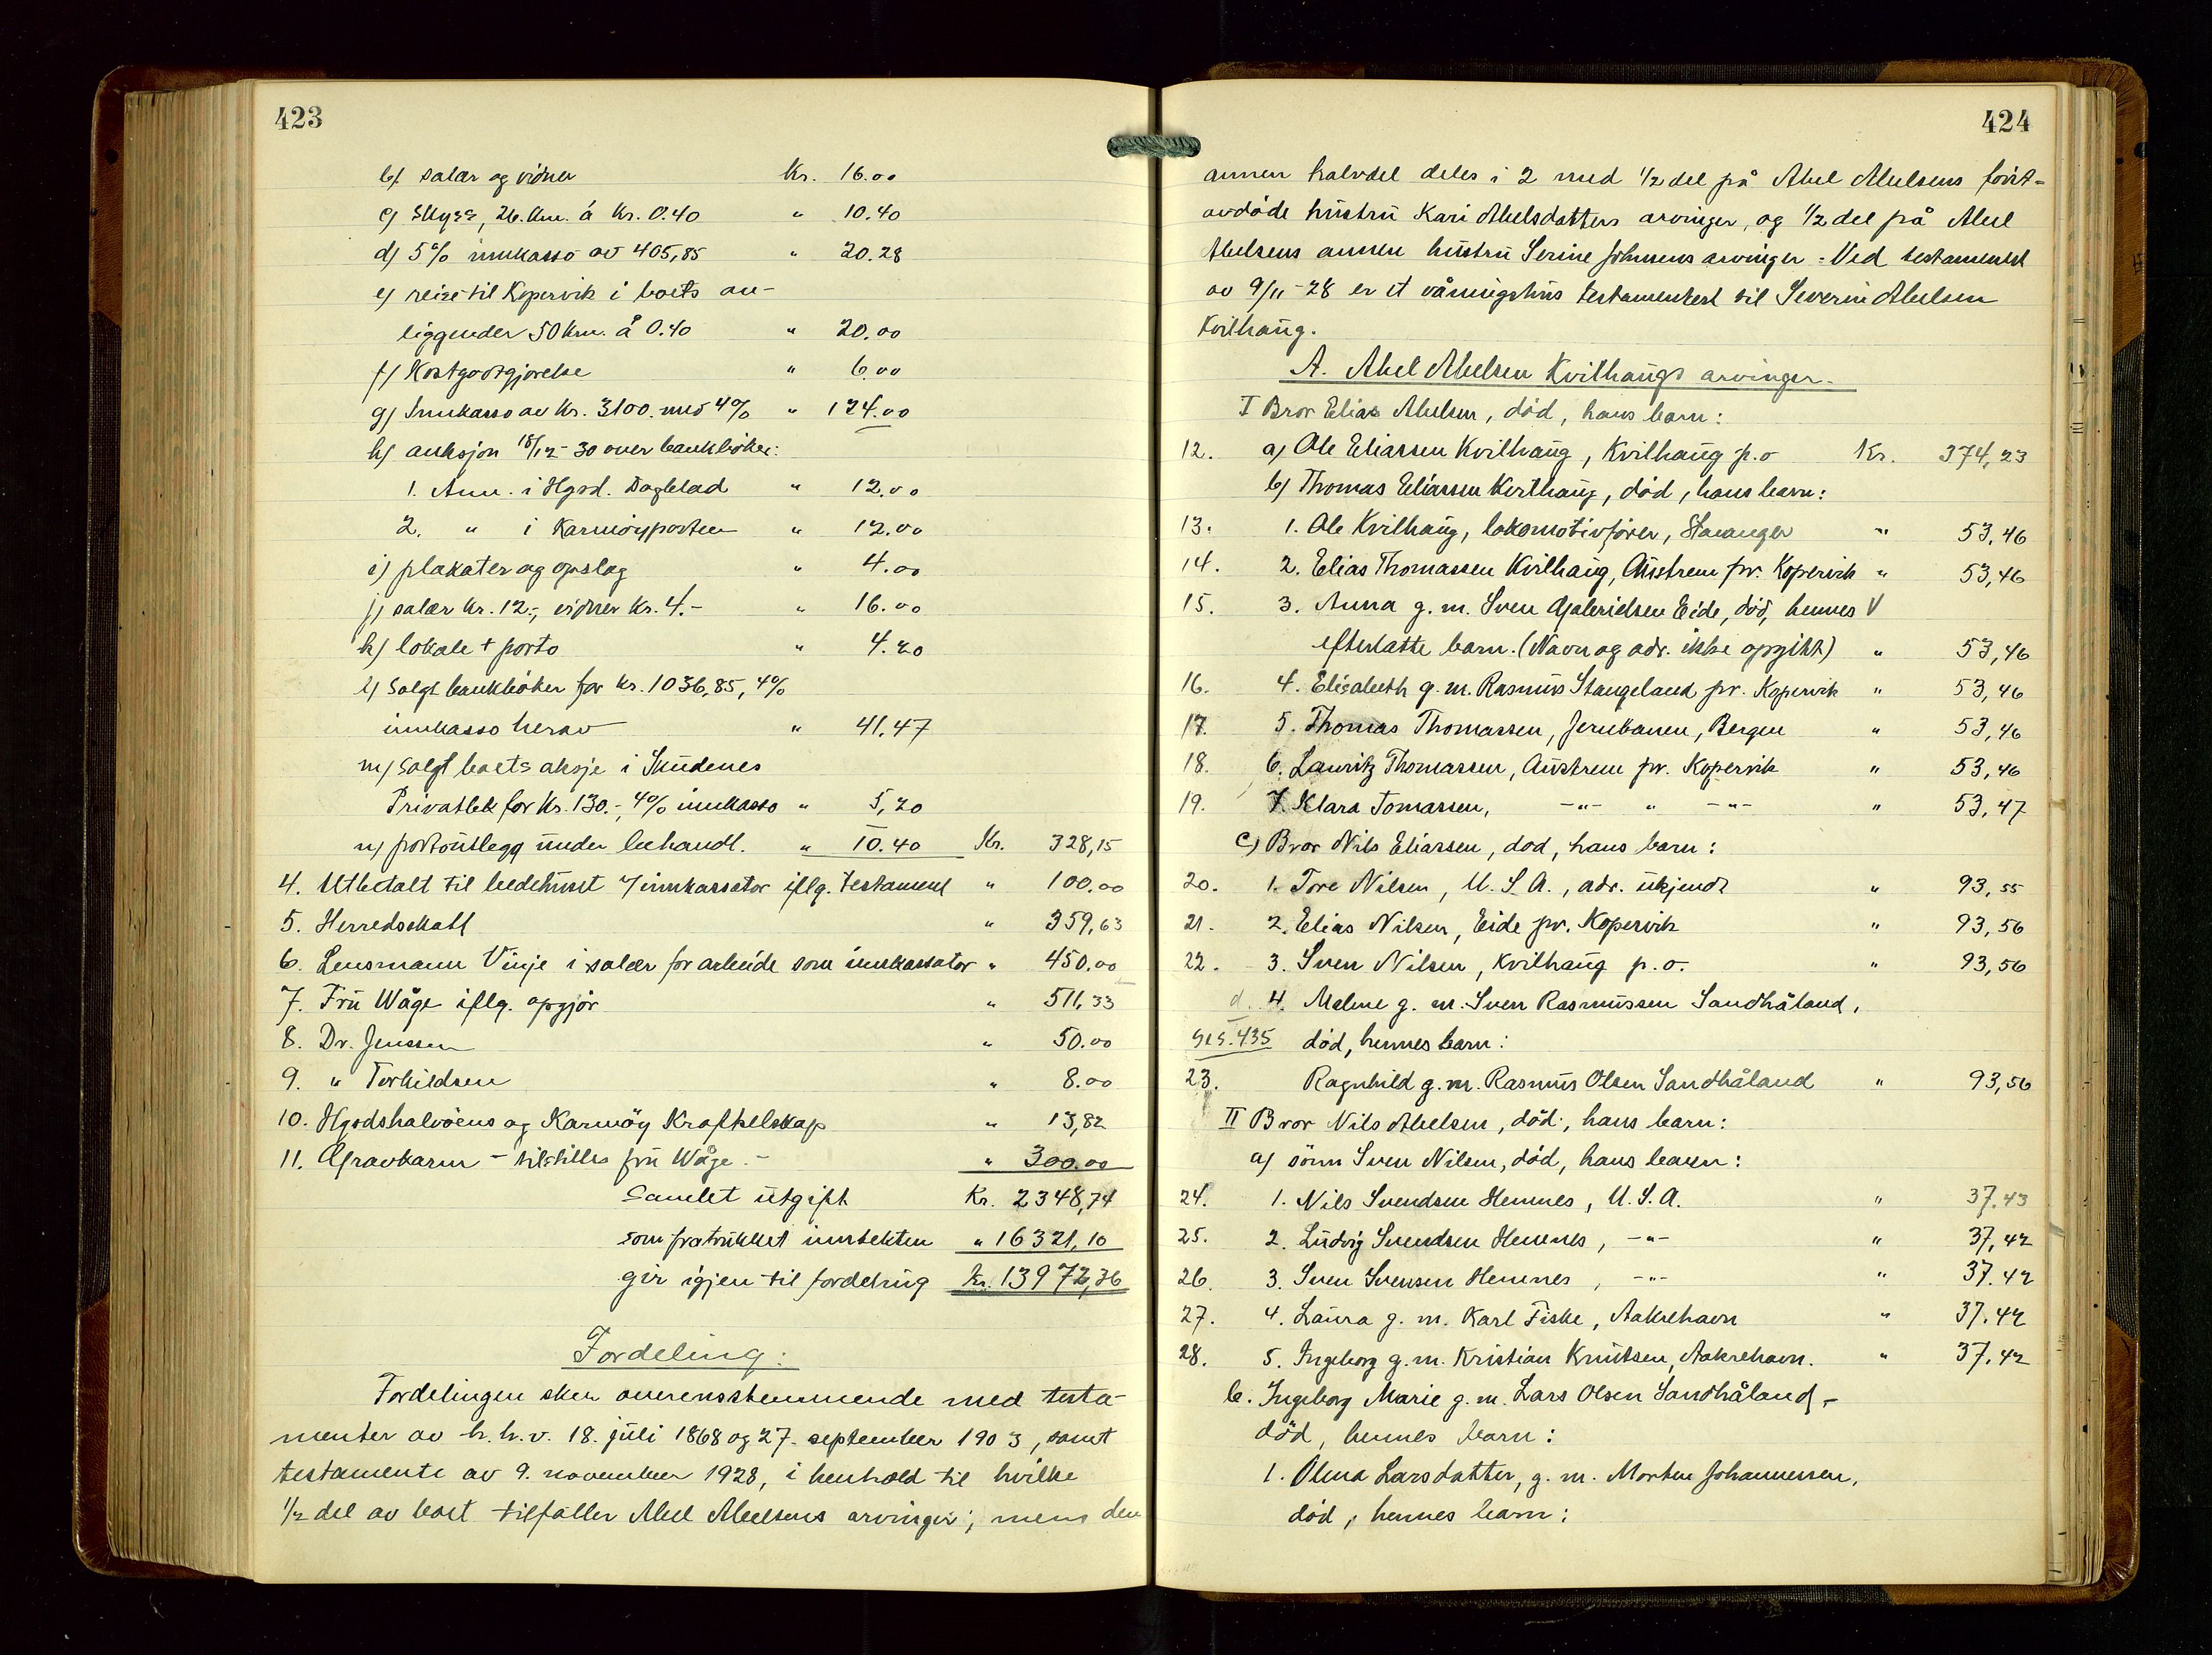 423
b) salær og vidner Kr. 16.00
c) Skyss, 26. km. á Kr. 0.40 " 10.40
d) 5% innkasso av 405,85 " 20.28
e) reise til Kopervik i boets an-
liggender 50 km. á 0.40 " 20.00
f) Kostgodtgjørelse " 6.00
g) Innkasso av Kr. 3100. med 4% " 124.00
h) auksjon 18/12-30 over bankbøker:
1. Ann. i Hgsd. Dagblad " 12.00
2. " i Karmøyposten " 12.00
i) plakater og opslag " 4.00
j) salær kr. 12.-, vidner kr. 4.- " 16.00
k) lokale + porto " 4.20
l) Solgt bankbøker for kr. 1036,85, 4%
innkasso herav " 41.47
m) Solgt boets aksje i Skudenes
Privatbk for Kr. 130.-, 4% innkasso " 5,20
n) portoutlegg under behandl. " 10.40 Kr. 328,15
4. Utbetalt til bedehuset v/innkassator iflg. testament " 100.00
5. Herredskatt " 359,63
6. Lensmann Vinje i salær for arbeide som innkassator " 450.00
7. Fru Våge iflg. opgjør " 511,33
8. Dr. Jenssen " 50.00
9. " Torkildsen " 8.00
10. Hgsdshalvøens og Karmøy Kraftselskap " 13,82
11. Gravkarm - tilstilles fru Våge.- " 300.00
Samlet utgift Kr. 2348,74
som fratrukket inntekten " 16321,10
gir igjen til fordeling kr. 13972,36
Fordeling:
Fordelingen sker overensstemmende med testa-
menter av h.h.v. 18. juli 1868 og 27. september 1903, samt
testamente av 9. november 1928, i henhold til hvilke
1/2 del av boet tilfaller Abel Abelsens arvinger, mens den
424
annen halvdel deles i 2 med 1/2 del på Abel Abelsens först-
avdöde hustru Kari Abelsdatters arvinger, og 1/2 del på Abel
Abelsens annen hustru Serine Johnsens arvinger. Ved testamentet
av 9/11-28 er et våningshus testamentert til Severin Abelsen
Kvilhaug.
A. Abel Abelsen Kvilhaugs arvinger.
I Bror Elias Abelsen, död, hans barn:
12. a) Ole Eliassen Kvilhaug, Kvilhaug p.o Kr. 374,23
b) Thomas Eliassen Kvilhaug, död, hans barn:
13. 1. Ole Kvilhaug, lokomotivfører, Stavanger " 53,46
14. 2. Elias Thomassen Kvilhaug, Austrem pr. Kopervik " 53,46
15. 3. Anna g. m. Sven Gabrielsen Eide, död, hennes V
efterlatte barn. (Navn og adr. ikke opgitt) " 53,46
16. 4. Elisabeth g. m. Rasmus Stangeland pr. Kopervik " 53,46
17. 5. Thomas Thomassen, Jernbanen, Bergen " 53,46
18. 6. Lauritz Thomassen, Austrem pr. Kopervik " 53,46
19. 7. Klara Tomassen, -"- " -"- " 53,47
c) Bror Nils Eliassen, död, hans barn:
20. 1. Tore Nilsen, U. S. A., adr. ukjendt " 93,55
21. 2. Elias Nilsen, Eide pr. Kopervik " 93,56
22. 3. Sven Nilsen, Kvilhaug p.o. " 93,56
d. 4. Malene g. m. Sven Rasmussen Sandhåland,
Se s. 435 död, hennes barn:
23. Ragnhild g. m. Rasmus Olsen Sandhåland " 93,56
II Bror Nils Abelsen, död, hans barn:
a) sönn Sven Nilsen, död, hans barn:
24. 1. Nils Svendsen Hemnes, U. S. A. " 37.43
25. 2. Ludvig Svendsen Hemnes, -"- " 37,42
26. 3. Sven Svensen Hemnes, -"- " 37.42
27. 4. Laura g. m. Karl Fiske, Aakrehavn " 37.42
28. 5. Ingeborg g. m. Kristian Knutsen, Aakrehavn. " 37,42
b. Ingeborg Marie g. m. Lars Olsen Sandhåland,-
död, hennes barn:
1. Olena Larsdatter, g. m. Morten Johannessen,
död, hennes barn: